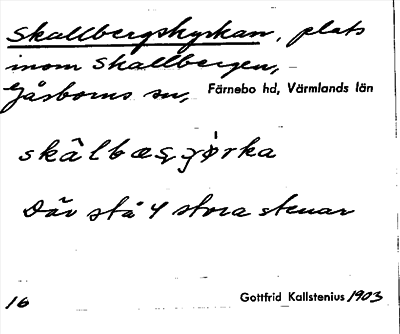 Skallbergskyrkan, plats
inom Skallbergen,
Gåsborns sn, Färnebo hd, Värmlands län
skâlbæ
Där stå 4 stora stenar
16 Gottfrid Kallstenius 1903